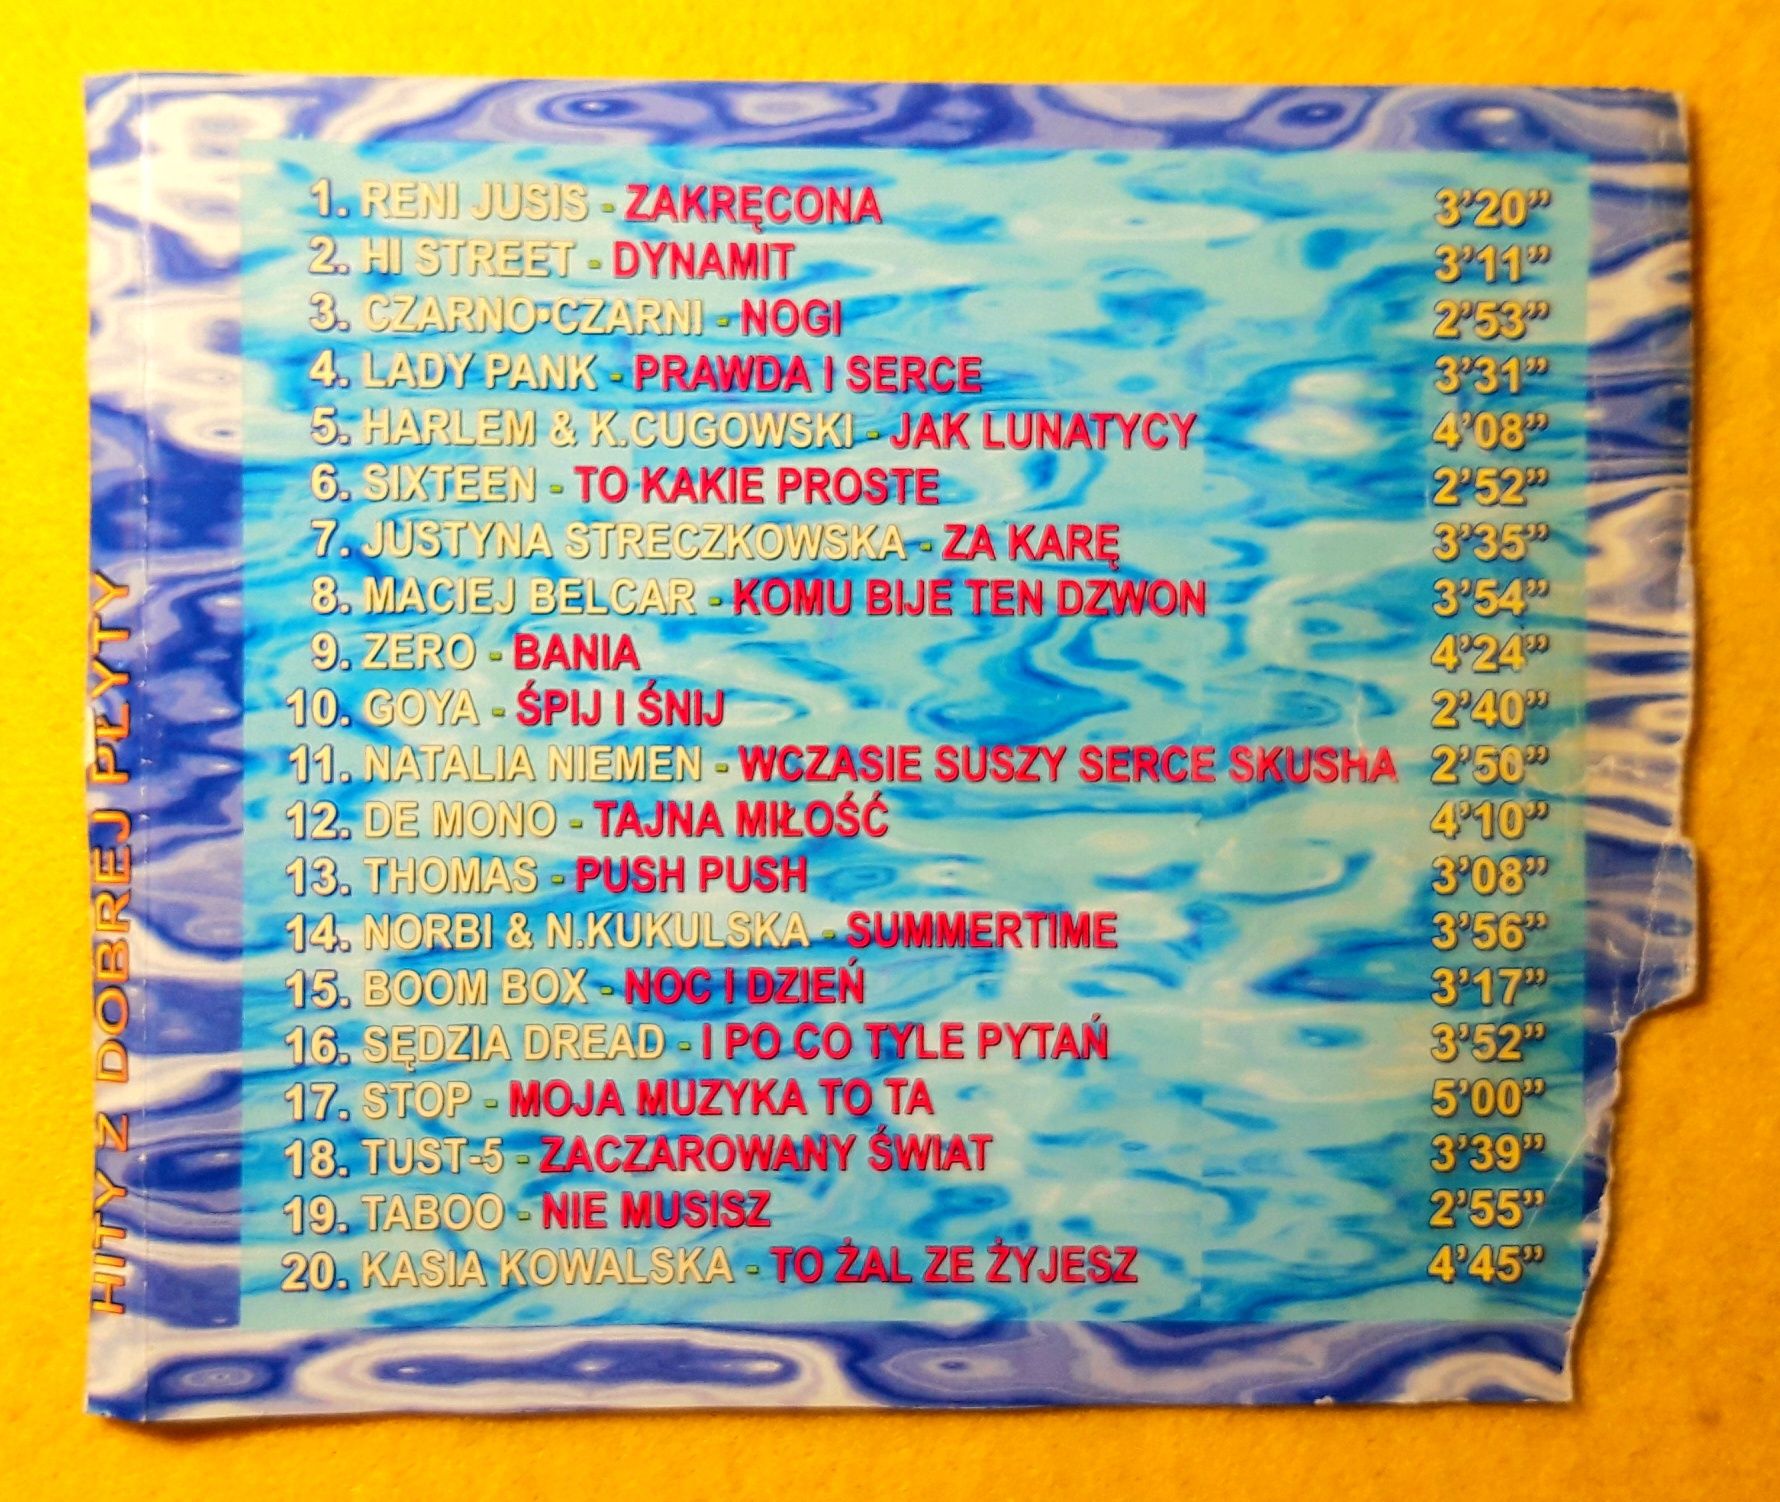 1. RENI JUSIS - ZAKRĘCONA 3’20”
2. HI STREET - DYNAMIT 3’11”
3. CZARNO•CZARNI - NOGI 2’53”
4. LADY PANK - PRAWDA I SERCE 3’31”
5. HARLEM & K.CUGOWSKI - JAK LUNATYCY 4’08”
6. SIXTEEN - TO KAKIE PROSTE 2’52”
7. JUSTYNA STRECZKOWSKA - ZA KARĘ 3’35”
8. MACIEJ BELCAR - KOMU BIJE TEN DZWON 3’54”
9. ZERO - BANIA 4’24”
10. GOYA - ŚPIJ I ŚNIJ 2’40”
11. NATALIA NIEMEN - WCZASIE SUSZY SERCE SKUSHA 2’50”
12. DE MONO - TAJNA MIŁOŚĆ 4’10”
13. THOMAS - PUSH PUSH 3’08”
14. NORBI & N.KUKULSKA - SUMMERTIME 3’56”
15. BOOM BOX - NOC I DZIEŃ 3’17”
16. SĘDZIA DREAD - I PO CO TYLE PYTAŃ 3’52”
17. STOP - MOJA MUZYKA TO TA 5’00”
18. TUST-5 - ZACZAROWANY ŚWIAT 3’39”
19. TABOO - NIE MUSISZ 2’55”
20. KASIA KOWALSKA - TO ŻAL ZE ŻYJESZ 4’45”
HITY Z DOBREJ PŁYTY